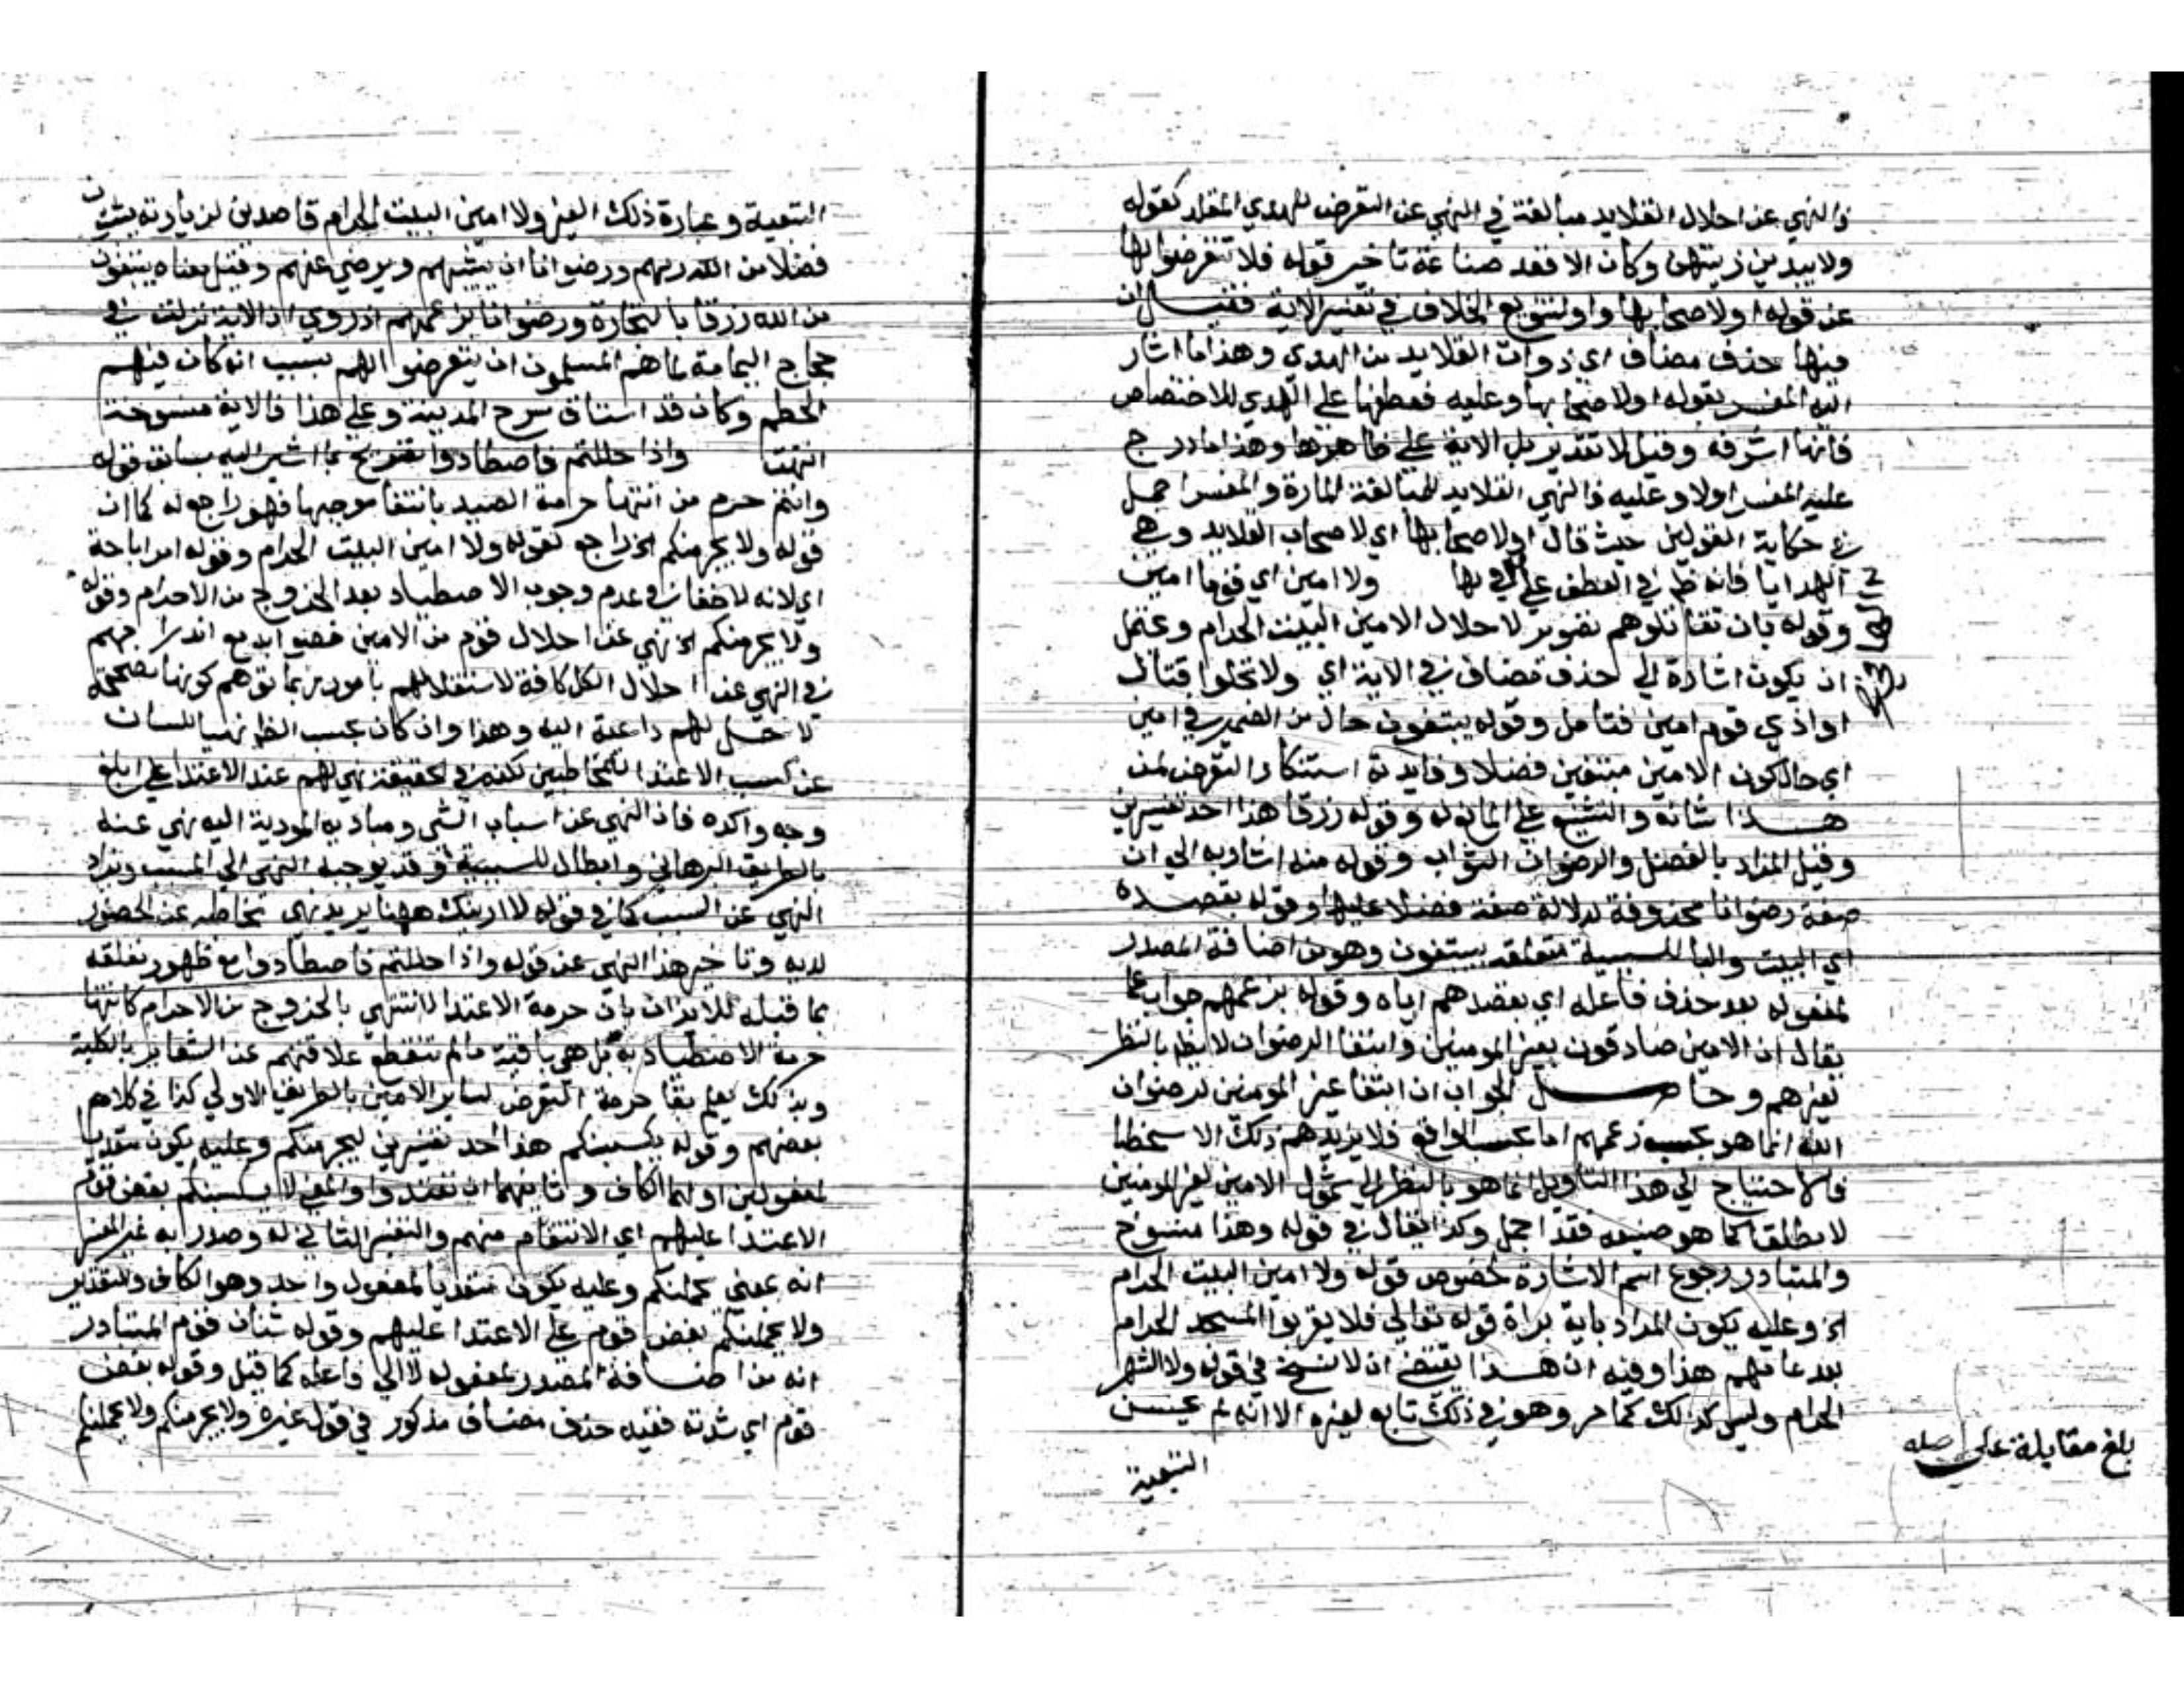 فالنهي عن احلال القلايد مبالغة في النهي عن التعرض للهدي المقلد كقوله
ولا يبدين زينتهن وكان الاقعد صناعة تاخير قوله فلا تتعرضوا لها
عن قوله اولا صحابها واو لتنويع الخلاف في تفسير الاية فقيل ان
فيها حذف مضاف اي ذوات القلايد من الهدي وهذا ما اشار
اليه المفسر بقوله اولا صحابها وعليه فعطفها على الهدي للاختصاص
فانها اشرفه وقيل لا تقدير بل الاية على ظاهرها وهذا ما درج
عليه المفسر اولا وعليه فالنهي القلايد للمبالغة المارة والمفسر اجمل
في حكاية القولين حيث قال اولا صحابها اي لا صحاب القلايد وهي
الهدايا فانه ظ في العطف على بها ولا امين اي قوما امين
وقوله بان تقاتلوهم تصوير لاحلال الامين البيت الحرام ويحتمل
ان يكون اشارة الى حذف مضاف في الاية اي ولا تحلوا قتال
او اذي قوم امين فتامل وقوله يبتغون حال من الضمير في امين
اي حال كون الامين مبتغين فضلا وفايدته استنكار التعرض لمن
هذا شانه والتشنيع على المانع له وقوله رزقا هذا احد تفسيرين
وقيل المراد بالفضل والرضوان الثواب وقوله منه اشار به الي ان
صفة رضوانا محذوفة لدلالة صفة فضلا عليها وقوله بقصده
اي البيت والبا للسببية متعلقه بيبتغون وهو من اضافة المصدر
لمفعوله بعد حذف فاعله اي بقصدهم اياه وقوله بزعمهم جواب عما
يقال ان الامين صادقون بغير المومنين وابتغا الرضوان لا يظ بالنظر
لغيرهم وحاصل الجواب ان ابتغا غير المومنين لرضوان
الله انما هو بحسب زعمهم اما بحسب الواقع فلا يزيدهم ذلك الا سخطا
فالاحتياج الي هذا التاويل انما هو بالنظر الي شمول الامين لغير المومنين
لا مطلقا كما هو صنيعه فقد اجمل وكذا يقال في قوله وهذا منسوخ
والمتبادر رجوع اسم الاشارة لخصوص قوله ولا امين البيت الحرام
الخ وعليه يكون المراد باية براة قوله تعالي فلا يقربوا المسجد الحرام
بعد عامهم هذا وفيه ان هذا يقتضي ان لا نسخ في قوله ولا الشهر
الحرام وليس كذلك كما مر وهو في ذلك تابع لغيره الا انه لم يحسن
التبعية
بلغ مقابلة على اصله
التبعية وعبارة ذلك الغير ولا امين البيت الحرام قاصدين لزيارته يبتغون
فضلا من الله ربهم ورضوانا ان يثيبهم ويرضي عنهم وقيل معناه يبتغون
من الله رزقا بالتجارة ورضوانا بزعمهم اذ روي ان الاية نزلت في
حجاج اليمامة لما هم المسلمون ان يتعرضوا لهم بسبب انه كان فيهم
الحطم وكان قد استاق سرح المدينة وعلى هذا فالاية منسوخة
انتهت واذا حللتم فاصطادوا تصريح بما اشير اليه سابق قوله
وانتم حرم من انتها حرمة الصيد بانتفا موجبها فهو راجع له كما ان
قوله ولا يجرمنكم الخ راجع لقوله ولا امين البيت الحرام وقوله امر اباحة
اي لانه لا خفا في عدم وجوب الاصطياد بعد الخروج من الاحرام وقوله
ولا يجرمنكم الخ نهي عن احلال قوم من الامين خصوا به مع اندراجهم
في النهي عن احلال الكل كافة لاستقلالهم بامور ربما توهم كونها مصححة
لاحلالهم داعية اليه وهذا وان كان بحسب الظ نهيا للشنان
عن كسب الاعتدا للمخاطبين لكنه في الحقيقة نهي لهم عند الاعتدا على ابلغ
وجه واكده فان النهي عن اسباب الشي ومباديه المودية اليه نهي عنه
بالطريق البرهاني وابطال للسببية وقد يوجه النهي الي المسبب ويراد
النهي عن السبب كما في قوله لا ارينك ههنا يريد نهي مخاطبه عن الحضور
لديه وتاخير هذا النهي عن قوله واذا حللتم فاصطادوا مع ظهور تعلقه
بما قبله للايذان بان حرمة الاعتدا لا تنتهي بالخروج من الاحرام كانتها
حرمة الاصطياد به بل هي باقية ما لم تنقطع علاقتهم عن الشعاير بالكلية
وبذلك يعلم بقا حرمة التعرض لساير الامين بالطريق الاولي كذا في كلام
بعضهم وقوله يكسبنكم هذا احد تفسيرين ليجرمنكم وعليه يكون متعديا
لمفعولين اولهما الكاف وثانيهما ان تعتدوا والمعنى لا يكسبنكم بغض قوم
الاعتدا عليهم اي الانتقام منهم والتفسير الثاني له وصدر به غير المفسر
انه بمعني يحملنكم وعليه يكون متعديا لمفعول واحد وهو الكاف والتقدير
ولا يحملنكم بغض قوم على الاعتدا عليهم وقوله شنان قوم المتبادر
انه من اضافة المصدر لمفعوله لا الي فاعله كما قيل وقوله بغض
قوم اي شدته ففيه حذف مضاف مذكور في قول غيره ولا يجرمنكم ولا يحملنكم